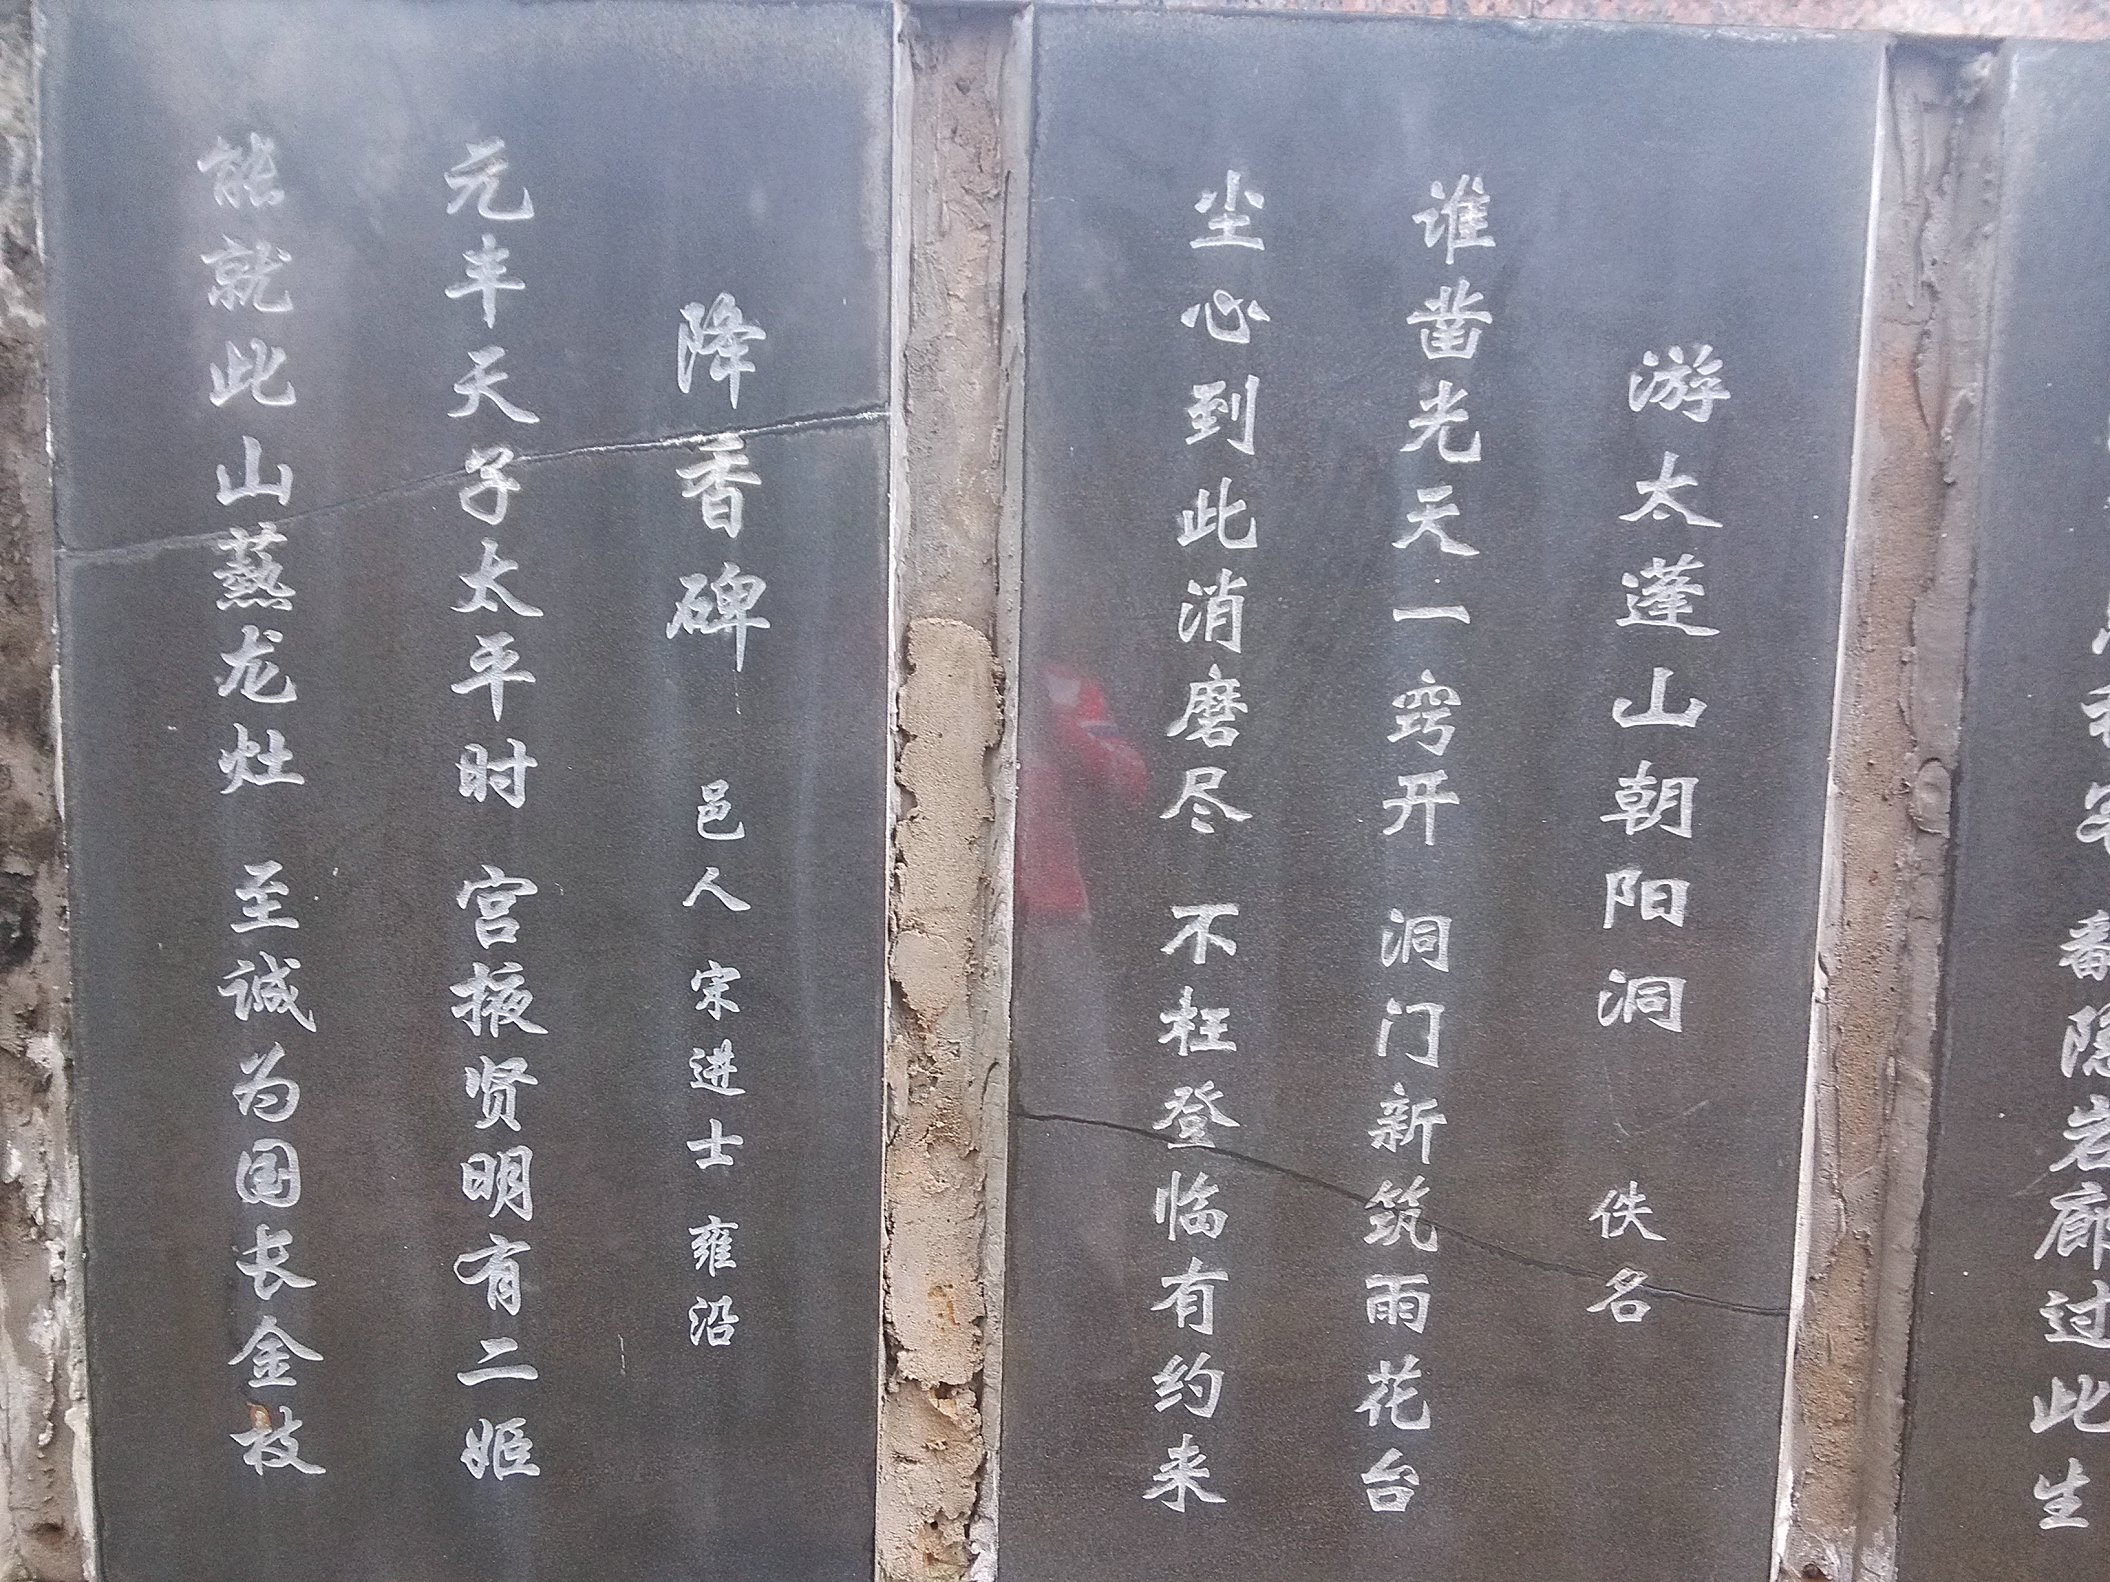 翻隐岩廊过此生
游太蓬山朝阳洞 佚名
谁凿光天一窍开 洞门新筑雨花台
尘心到此消磨尽 不枉登临有约来
降香碑 邑人宋进士 雍沿
元丰天子太平时 宫掖贤明有二姬
能就此山爇龙灶 至诚为国长金枝